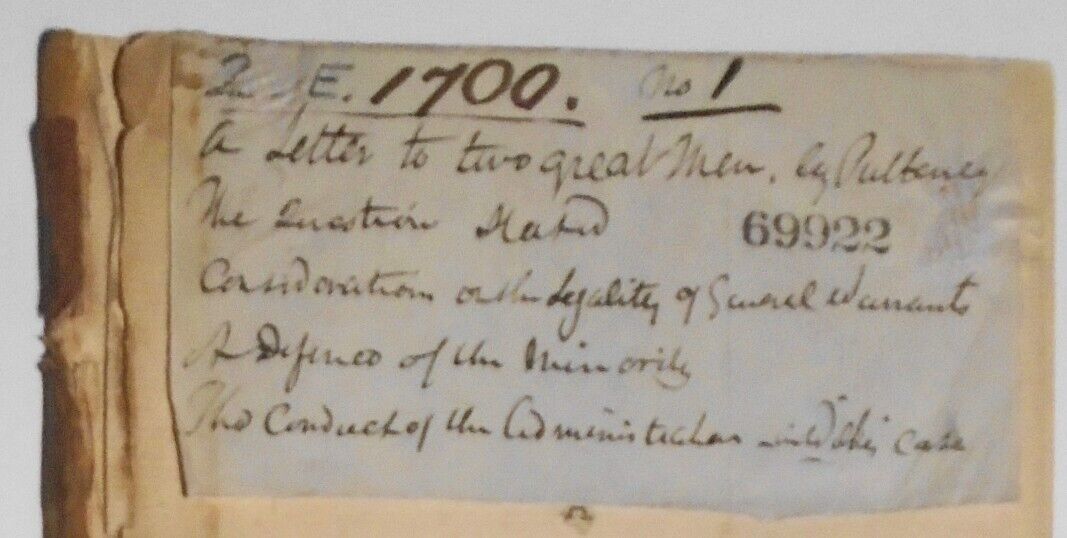 E. 1700. No 1
A Letter to two great Men, by Pulteney
The Question Stated
69922
Considerations on the Legality of General Warrants
A Defence of the Minority
The Conduct of the Administration in case